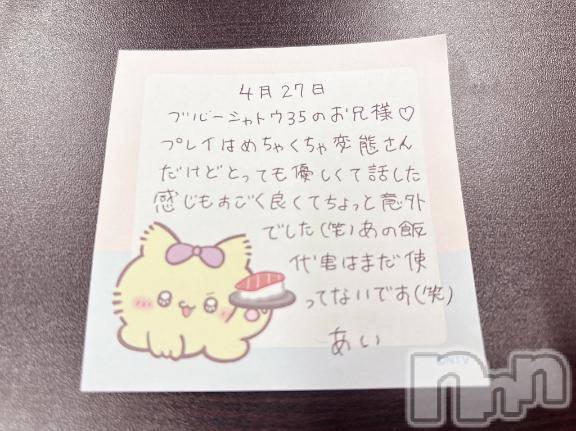 4月27日
ブルーシャトウ35のお兄様♡
プレイはめちゃくちゃ変態さん
だけどとっても優しくて話した
感じもすごく良くてちょっと意外
でした(笑)あの飯
代実はまだ使
ってないです(笑)
あい
nnn